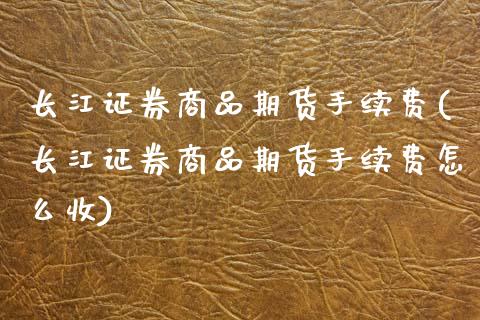 长江证券商品期货手续费(
长江证券商品期货手续费怎
么收)